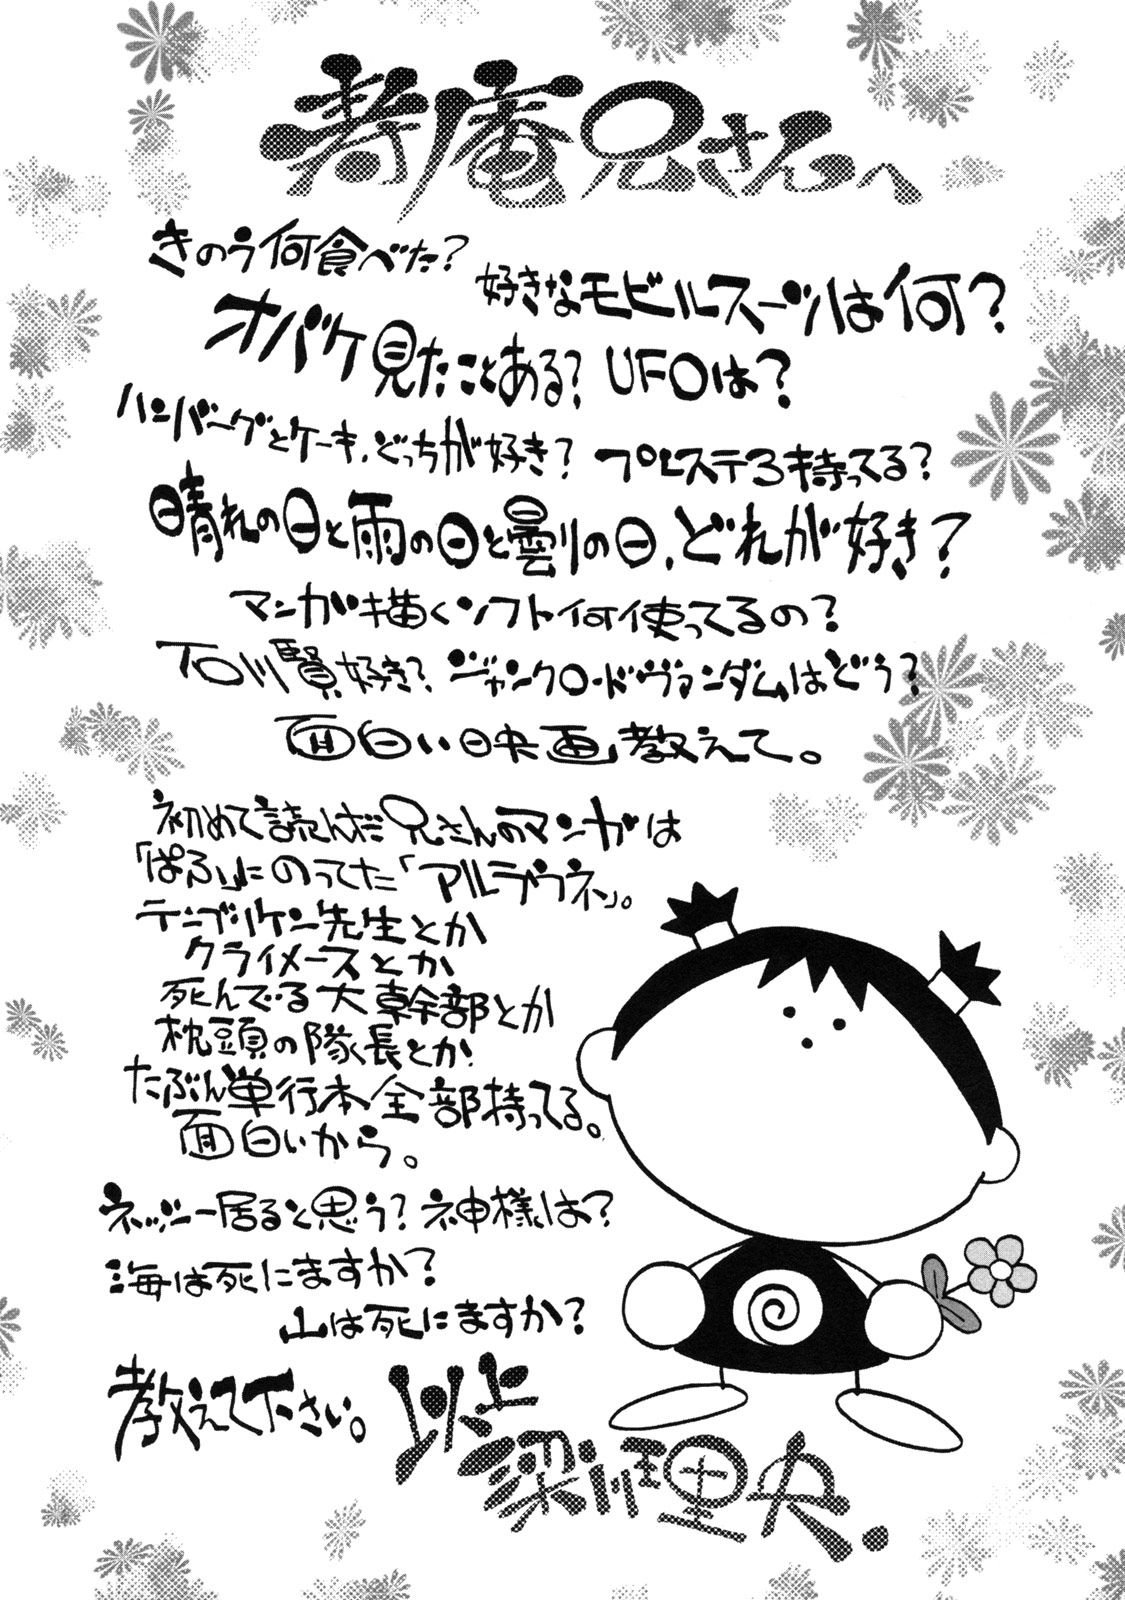 寿庵兄さんへ
きのう何食べた?
好きなモビルスーツは何?
オバケ見たことある? UFOは?
ハンバーグとケーキ、どっちが好き? プレステ3持ってる?
晴れの日と雨の日と曇りの日、どれが好き?
マンガ描くソフト何使ってるの?
石川賢好き? ジャンクロードヴァンダムはどう?
面白い映画教えて。
初めて読んだ兄さんのマンガは
「ぱふ」にのってた「アルラウネ」。
テンプリケン先生とか
クライメースとか
死んでる大幹部とか
枕頭の隊長とか
たぶん単行本全部持ってる。
面白いから。
ネッシー居ると思う? 神様は?
海は死にますか?
山は死にますか?
教えて下さい。
以上
梁川理央.